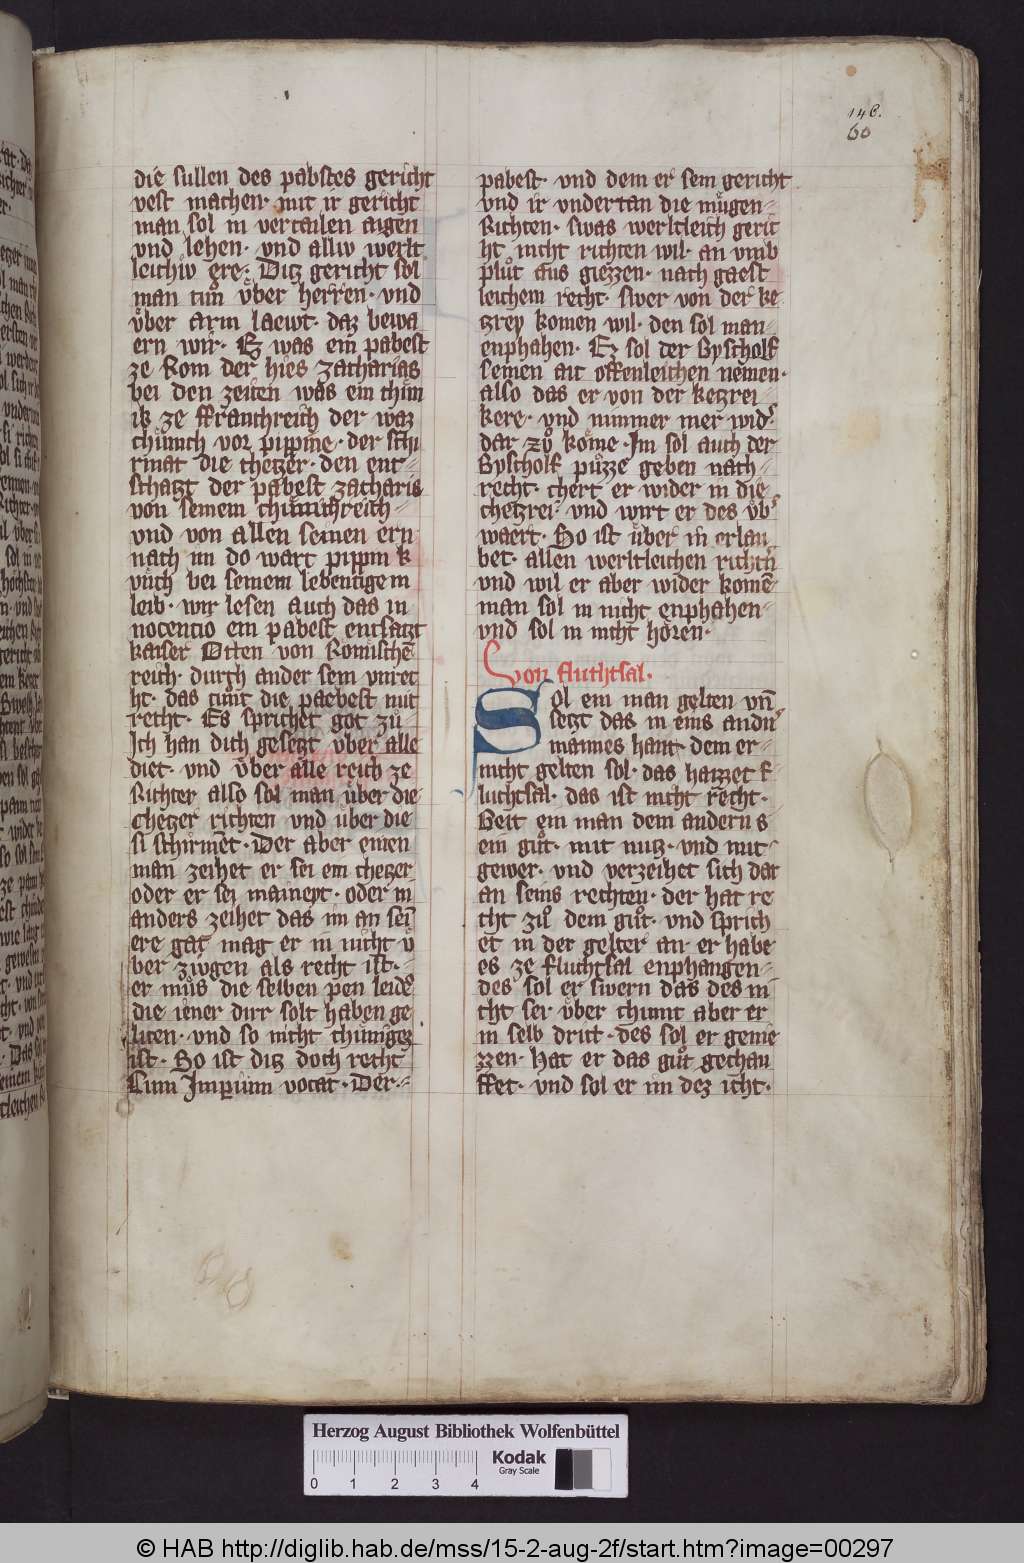 146.
60
die sullen des pabstes gericht
vest machen· mit ir gericht
man sol in vertailen aigen
vnd lehen· vnd alliv werlt
leichiv ere· Ditz gericht sol
man tůn vͤber herren· vnd
vͤber arm laewt· daz bewa
ern wir· Ez was ein pabest
ze Rom der hies zacharias
bei den zeiten was ein chün
ik ze ffranchreich der waz
chünich vor pippine· der schi
rmat die chetzer· den ent-
schatzt der pabest zacharis
von seinem chünichreich-
vnd von allen seinen ern
nach im do wart pippin k
vnich bei seinem lebentigem
leib· wir lesen auch das in
nocencio ein pabest entsatzt
kaiser Otten von Romischē
reich· durch ander sein vnrec
ht· das tůnt die paebest mit
recht· Es sprichet got zů
Ich han dich gesetzt vber alle
diet· vnd vͤber alle reich ze
Richter also sol man vͤber die
chetzer richten vnd vͤber die
si schirmēt· Der aber einen
man zeihet er sei ein chetzer
oder er sei maineyt· oder in
anders zeihet das im an sein
ere gat mag er in nicht v
ber zivgen als recht ist·-
er můs die selben pen leidē
die iener dirr solt haben ge
liten· vnd so nicht chünigez
ist· So ist ditz doch recht
Cum Imperium vocat· Der·-
pabest· vnd dem er sein gericht
vnd ir vndertan die mügen-
Richten· swas werltleich geric
ht nicht richten wil· an vmb
plůt aus giezzen· nach gaest
leichem recht· swer von der ke
tzrey komen wil· den sol man-
enphahen· Ez sol der Byscholf
seinen ait offenleichen nemen·
also das er von der ketzrei
kere· vnd nimmer mer wid'
dar zů kome· Im sol auch der
Byscholf půzze geben nach-
recht· chert er wider in die
chetzrei· vnd wirt er des vͤb'
waert· So ist vͤber in erlau
bet· allen werltleichen richtn̄
vnd wil er aber wider komē
man sol in nicht enphahen-
vnd sol in nicht hören·
Von fluchtsal·
Sol ein man gelten vn̄
setzt das in eins andn̄
mannes hant· dem er-
nicht gelten sol· das haizzet f
luchtsal· das ist nicht recht·
Seit ein man dem andern s
ein gůt· mit nutz· vnd mit
gewer· vnd verzeihet sich dar
an seins rechten· der hat re
cht zů dem gůt· vnd sprich
et in der gelter an· er habe
es ze fluchtsal enphangen-
des sol er swern das des ni
cht ser vͤber chumt aber er
in selb dritt· des sol er genie
zzen· Hat er das gůt gechau
ffet· vnd sol er im dez icht·
Herzog August Bibliothek Wolfenbüttel
0 1 2 3 4
Kodak
Gray Scale
© HAB http://diglib.hab.de/mss/15-2-aug-2f/start.htm?image=00297